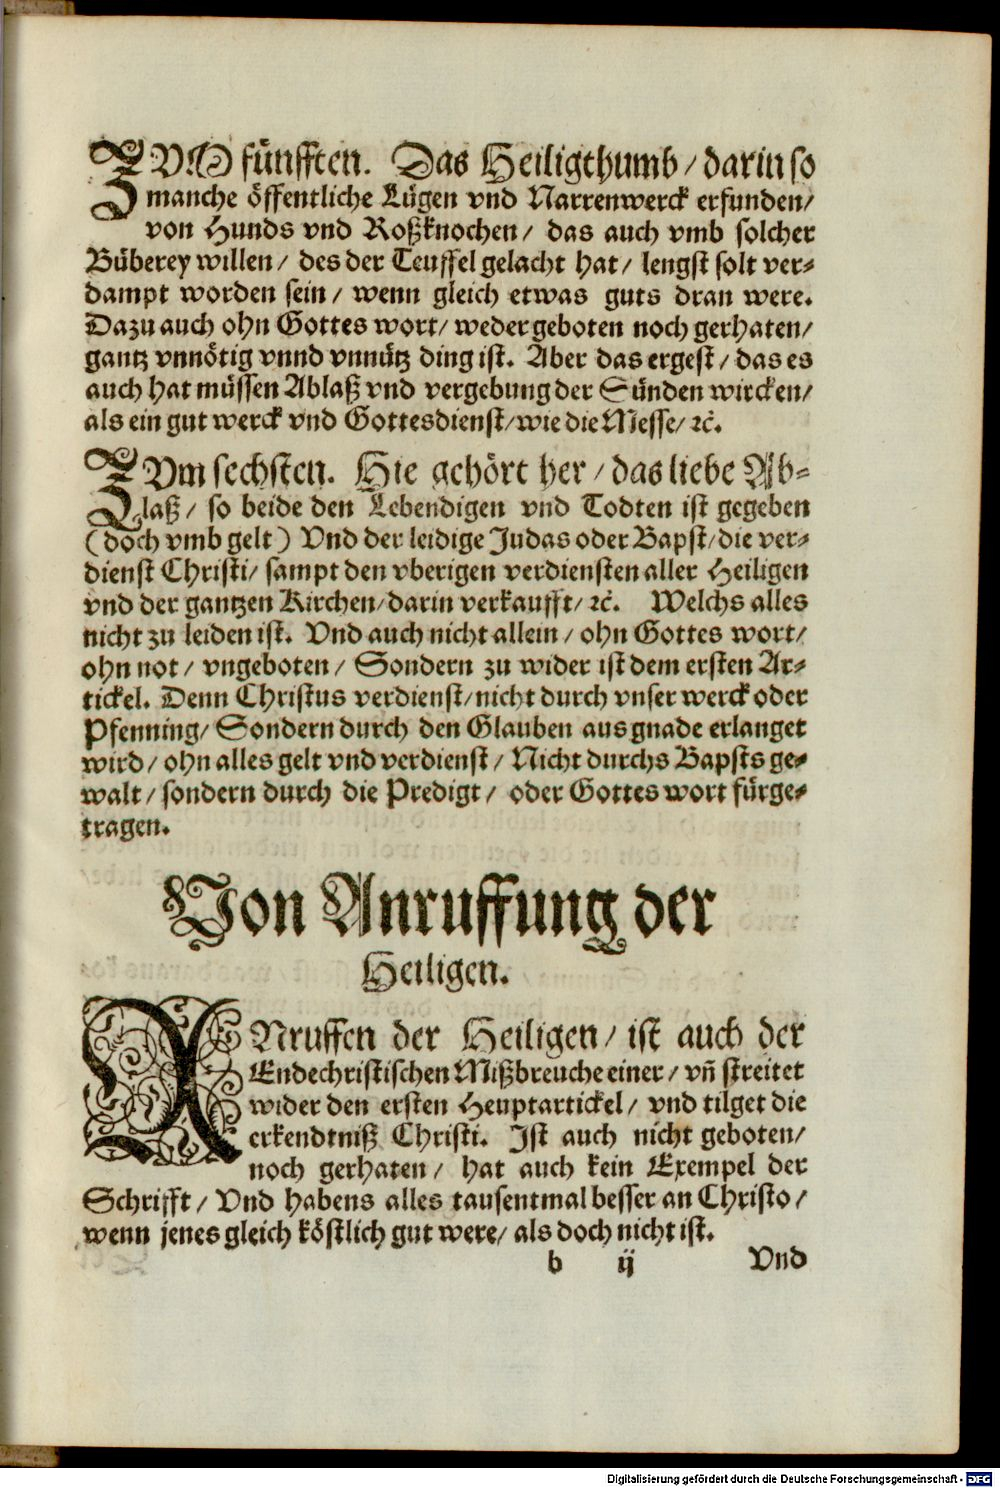 ZVM fünfften. Das Heiligthumb / darin so
manche öffentliche Lügen vnd Narrenwerck erfunden /
von Hunds vnd Roßknochen / das auch vmb solcher
Büberey willen / des der Teuffel gelacht hat / lengst solt ver-
dampt worden sein / wenn gleich etwas guts dran were.
Dazu auch ohn Gottes wort / weder geboten noch gerhaten /
gantz vnnötig vnnd vnnütz ding ist. Aber das ergest / das es
auch hat müssen Ablaß vnd vergebung der Sünden wircken /
als ein gut werck vnd Gottesdienst / wie die Messe / ꝛc̄.
ZVm sechsten. Hie gehört her / das liebe Ab-
laß / so beide den Lebendigen vnd Todten ist gegeben
(doch vmb gelt) Vnd der leidige Judas oder Bapst / die ver-
dienst Christi / sampt den vberigen verdiensten aller Heiligen
vnd der gantzen Kirchen / darin verkaufft / ꝛc̄. Welchs alles
nicht zu leiden ist. Vnd auch nicht allein / ohn Gottes wort /
ohn not / vngeboten / Sondern zu wider ist dem ersten Ar-
tickel. Denn Christus verdienst / nicht durch vnser werck oder
Pfenning / Sondern durch den Glauben aus gnade erlanget
wird / ohn alles gelt vnd verdienst / Nicht durchs Bapsts ge-
walt / sondern durch die Predigt / oder Gottes wort fürge-
tragen.
Von Anruffung der
Heiligen.
ANruffen der Heiligen / ist auch der
Endechristischen Mißbreuche einer / vñ streitet
wider den ersten Heuptartickel / vnd tilget die
erkendtniß Christi. Ist auch nicht geboten /
noch gerhaten / hat auch kein Exempel der
Schrifft / Vnd habens alles tausentmal besser an Christo /
wenn jenes gleich köstlich gut were / als doch nicht ist.
b ij Vnd
Digitalisierung gefördert durch die Deutsche Forschungsgemeinschaft - DFG